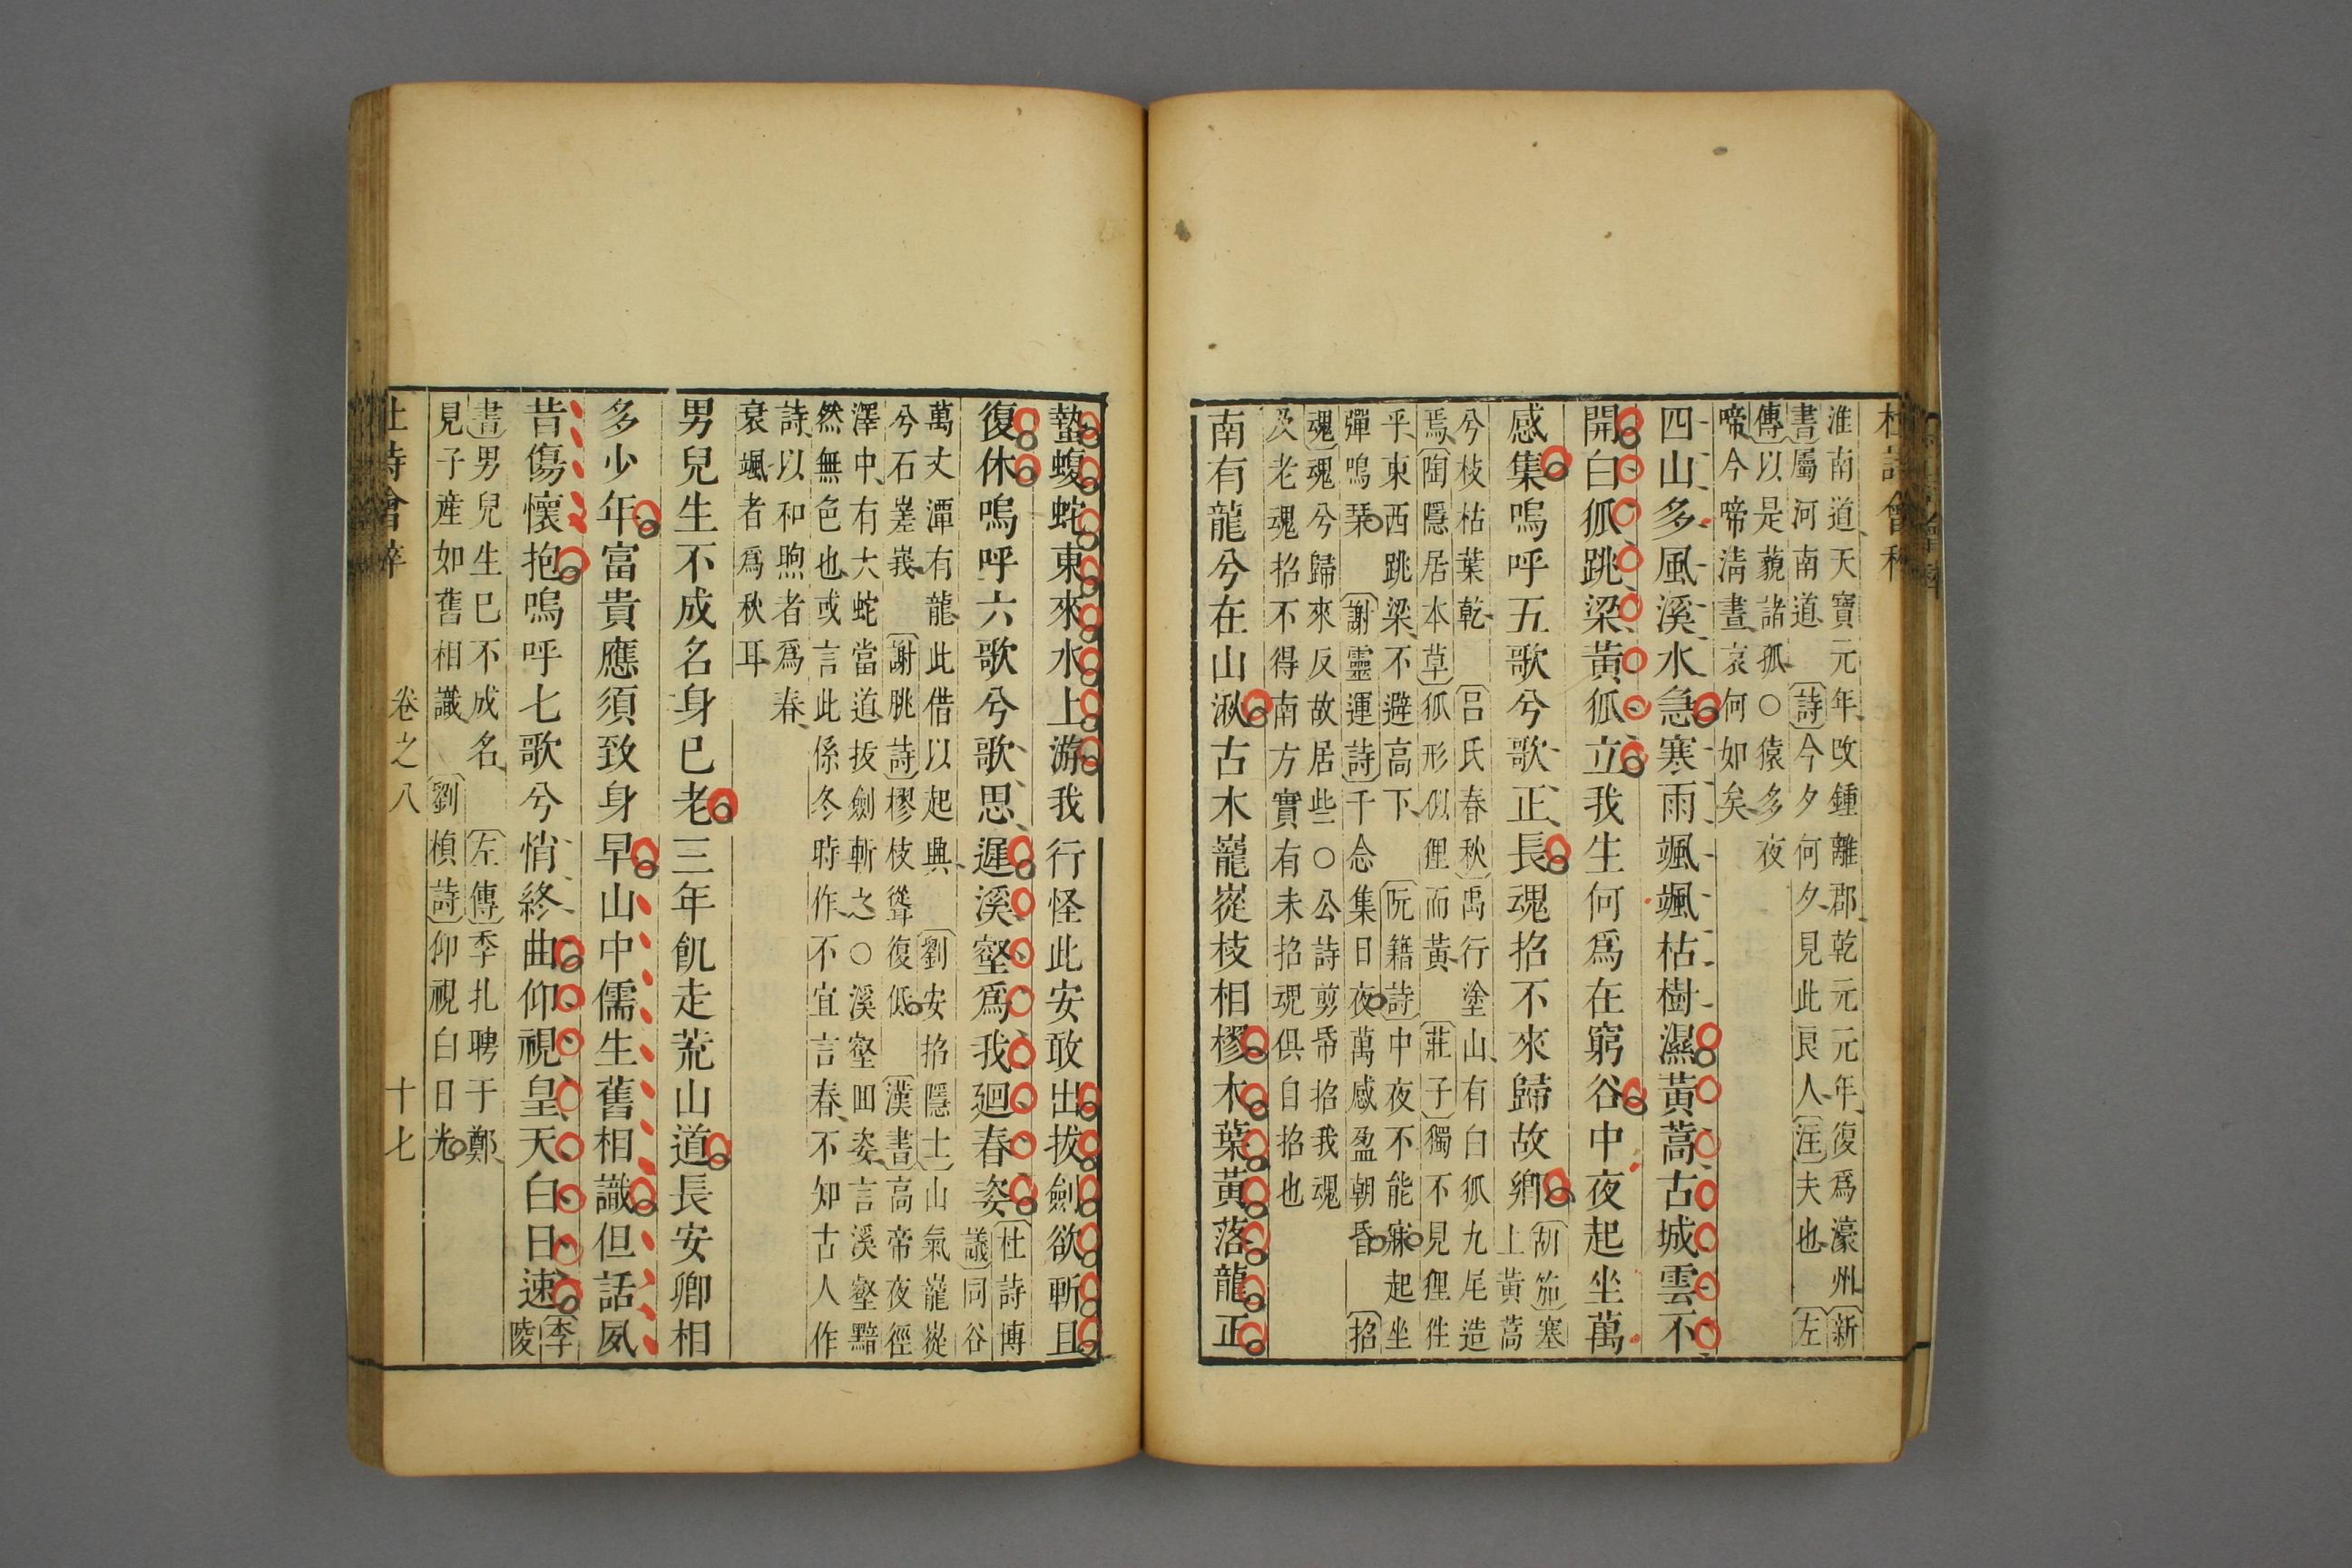 杜詩會稡
淮南道天寶元年改鍾離郡乾元元年復爲濠州〔新
書〕屬河南道〔詩〕今夕何夕見此良人〔注〕夫也〔左
傳〕以是藐諸孤○猿多夜
啼今啼清晝哀何如矣
四山多風溪水急寒雨颯颯枯樹濕黃蒿古城雲不
開白狐跳梁黃狐立我生何爲在窮谷中夜起坐萬
感集嗚呼五歌兮歌正長魂招不來歸故鄉
〔胡笳〕塞
上黃蒿
兮枝枯葉乾〔呂氏春秋〕禹行塗山有白狐九尾造
焉〔陶隱居本草〕狐形似狸而黃〔莊子〕獨不見狸狌
乎東西跳梁不避高下〔阮籍詩〕中夜不能寐起坐
彈鳴琹〔謝靈運詩〕千念集日夜萬感盈朝昏〔招
魂〕魂兮歸來反故居些○公詩剪帋招我魂
及老魂招不得南方實有未招魂俱自招也
南有龍兮在山湫古木巃嵸枝相樛木葉黃落龍正
蟄蝮蛇東來水上游我行怪此安敢出拔劍欲斬且
復休嗚呼六歌兮歌思遲溪壑爲我迴春姿
〔杜詩博
議〕同谷
萬丈潭有龍此借以起興〔劉安招隱士〕山氣巃嵸
兮石嵳峩〔謝朓詩〕樛枝聳復低〔漢書〕高帝夜徑
澤中有大蛇當道拔劍斬之○溪壑囬姿言溪壑黯
然無色也或言此係冬時作不宜言春不知古人作
詩以和煦者爲春
衰颯者爲秋耳
男兒生不成名身已老三年飢走荒山道長安卿相
多少年富貴應須致身早山中儒生舊相識但話夙
昔傷懷抱嗚呼七歌兮悄終曲仰視皇天白日速
〔李
陵
書〕男兒生已不成名〔左傳〕季札聘于鄭
見子產如舊相識〔劉楨詩〕仰視白日光
杜詩會稡 卷之八 十七